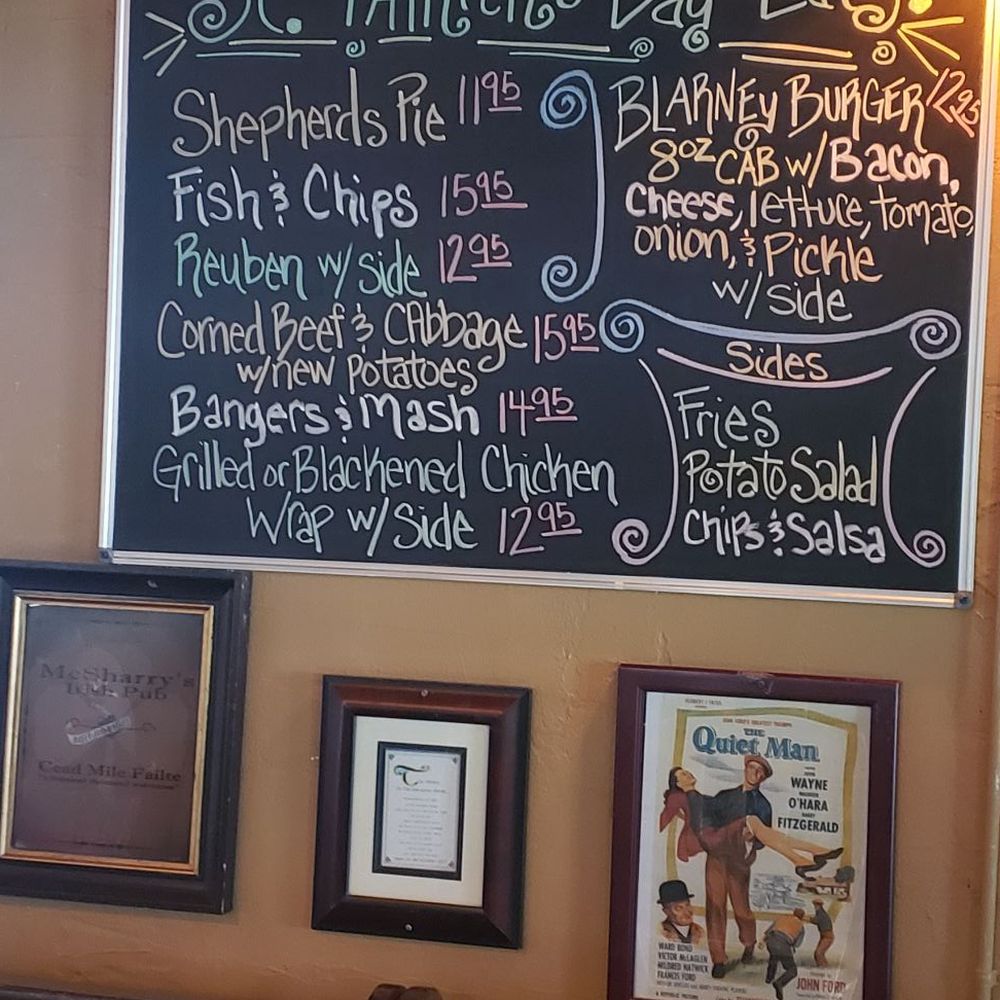 St. Patrick's Day Eats!
Shepherds Pie 11.95
Fish & Chips 15.95
Reuben w/ side 12.95
Corned Beef & CAbbage 15.95
w/new Potatoes
Bangers & Mash 14.95
Grilled or Blackened Chicken
Wrap w/ Side 12.95
BLARNEy BURGER 12.95
8oz CAB w/ Bacon,
Cheese, lettuce, tomato,
onion, & Pickle
w/ side
Sides
Fries
Potato Salad
Chips & Salsa
McSharry's
Irish Pub
Cead Mile Failte
THE
Quiet Man
JOHN
WAYNE
MAUREEN
O'HARA
BARRY
FITZGERALD
WARD BOND
VICTOR McLAGLEN
MILDRED NATWICK
FRANCIS FORD
JOHN FORD
A REPUBLIC PICTURE